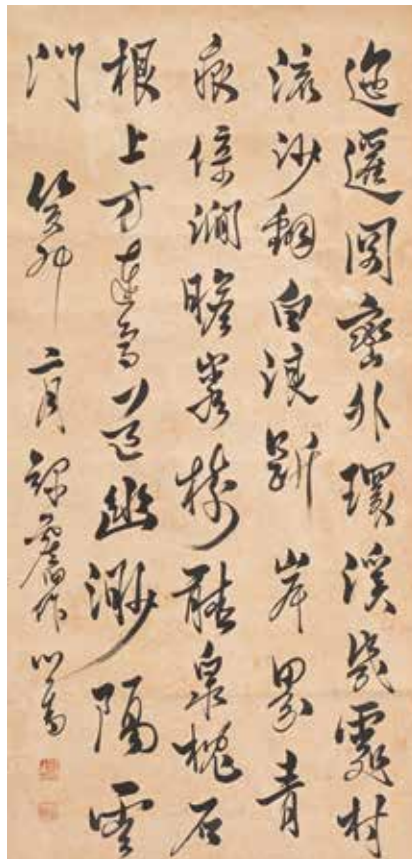 迤邐岡巒外環溪幾處村
流沙翻白浪斷岸界青
痕澗瞻巖樹聽泉枕石
根上方幽渺隔雲
門 癸卯二月錄舊作 心畬